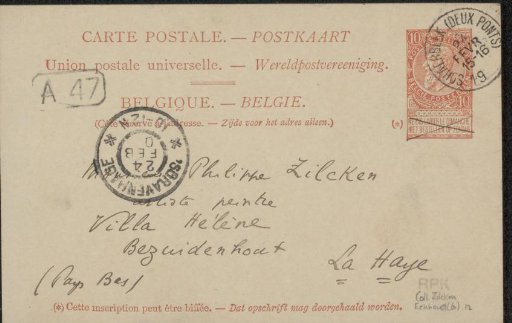 CARTE POSTALE. — POSTKAART
Union postale universelle. — Wereldpostvereeniging.
BELGIQUE. — BELGIE.
(Côté réservé à l'adresse. — Zijde voor het adres alleen.)
(*)
A 47
10
10
'SGRAVENHAGE
24
FEB
Philippe Zilcken
artiste peintre
Villa Hélène
Bezuidenhout
La Haye
(Pays Bas)
(*) Cette inscription peut être biffée. — Dat opschrift mag doorgehaald worden.
RPK
Coll. Zilcken